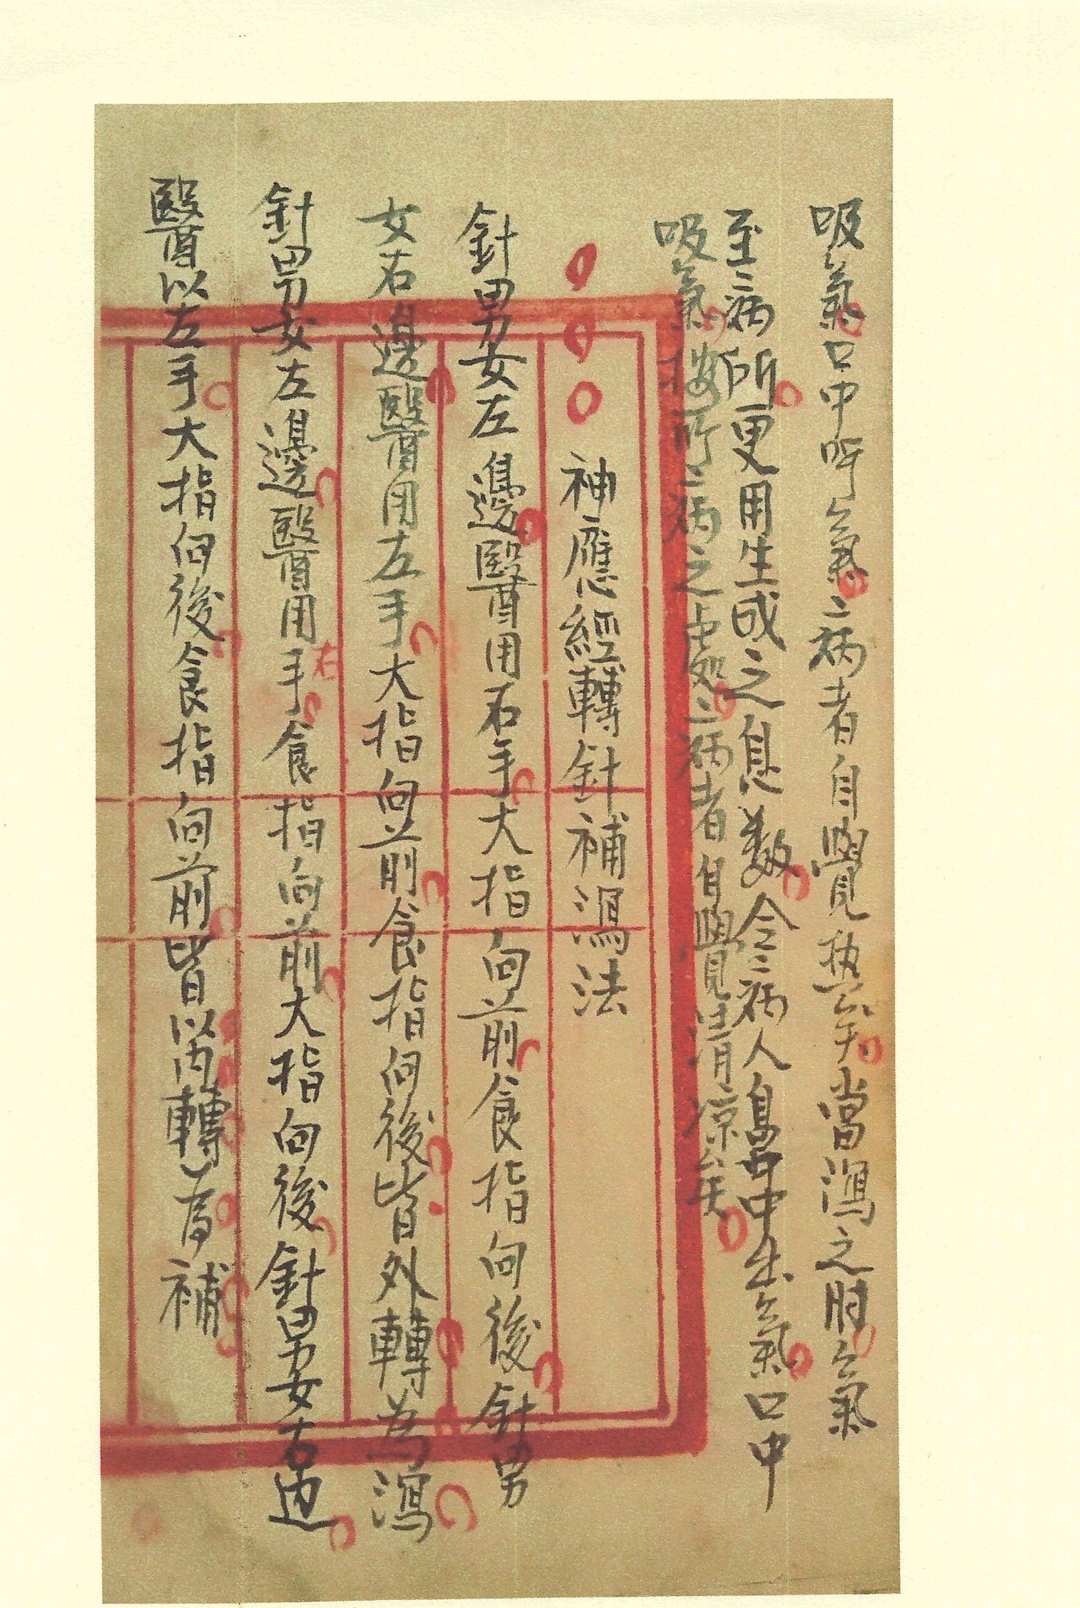 吸氣口中呼氣〻病者自覺热矣當瀉之時氣
至〻病所更用生成之息数令〻病人鼻中出氣口中
吸氣按所〻病之處〻病者自覺清凉矣
神應經轉針補瀉法
針男女左邊醫用右手大指向前食指向後針男
女右邊醫用左手大指向前食指向後皆外轉為瀉
針男女左邊醫用右手食指向前大指向後針男女右边
醫以左手大指向後食指向前皆以内轉為補